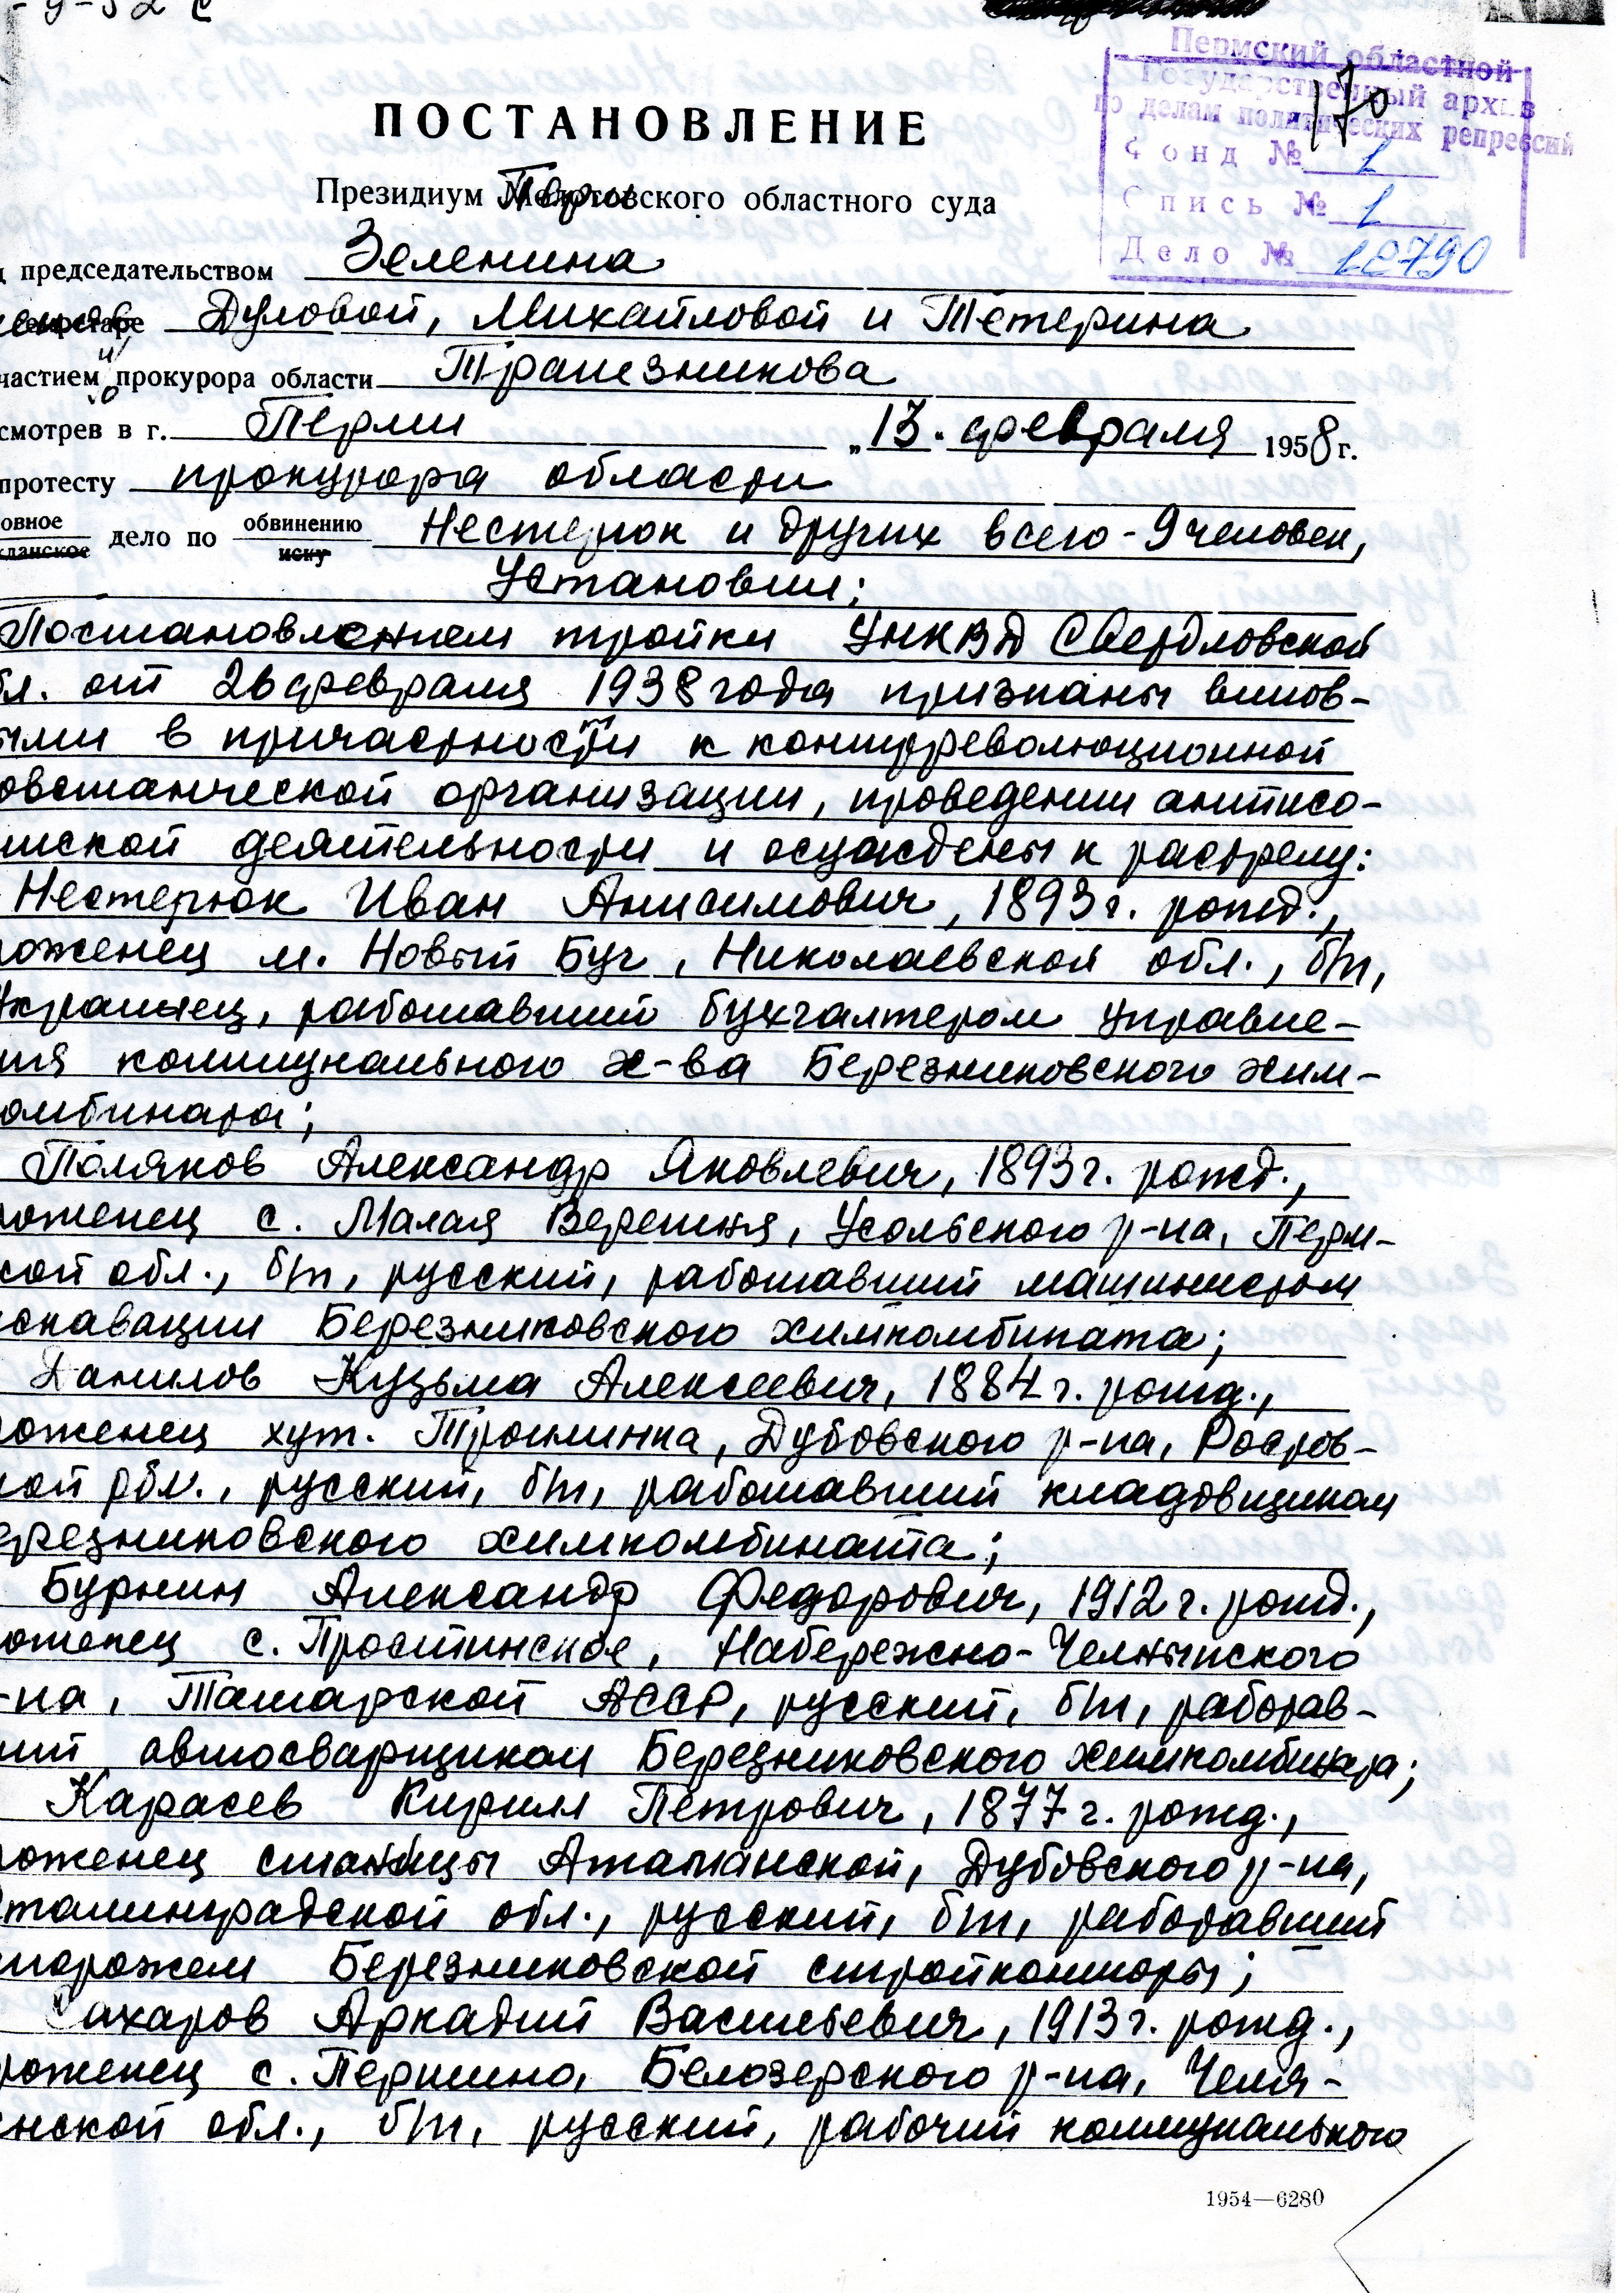 -9-52 с
Пермский областной
Государственный архив
по делам политических репрессий
170
Фонд № 1
Опись № 1
Дело № 12790
ПОСТАНОВЛЕНИЕ
Президиум Пермского областного суда
д председательством Зеленина
членов Дуловой, Михайловой и Тетерина
частием и/о прокурора области Трапезникова
смотрев в г. Перми „13. февраля 1958 г.
протесту прокурора области
овное / жданское дело по обвинению / иску Нестерюк и других всего - 9 человек,
Установил:
Постановлением тройки УНКВД Свердловской
бл. от 26 февраля 1938 года признаны винов-
ыми в причастности к контрреволюционной
овстанческой организации, проведении антисо-
тской деятельности и осуждены к растрелу:
Нестерюк Иван Анисимович, 1893 г. рожд.,
роженец м. Новый Буг, Николаевской обл., б/п,
украинец, работавший бухгалтером управле-
ния коммунального х-ва Березниковского хим-
омбината;
Поляков Александр Яковлевич, 1893 г. рожд.,
роженец с. Малая Верешня, Усольского р-на, Перм-
ской обл., б/п, русский, работавший машинистом
скавации Березниковского химкомбината;
Данилов Кузьма Алексеевич, 1884 г. рожд.,
роженец хут. Трошинка, Дубовского р-на, Ростов-
кой обл., русский, б/п, работавший кладовщиком
ерезниковского химкомбината;
Бурнин Александр Федорович, 1912 г. рожд.,
оженец с. Простинское, Набережно-Челнынского
-на, Татарской АССР, русский, б/п, работав-
ший автосварщиком Березниковского химкомбината;
Карасев Кирилл Петрович, 1877 г. рожд.,
роженец станицы Атаманской, Дубовского р-на,
Сталинградской обл., русский, б/п, работавший
торожем Березниковской стройконторы;
Сахаров Аркадий Васильевич, 1913 г. рожд.,
роженец с. Першино, Белозерского р-на, Челя-
нской обл., б/п, русский, рабочий коммунального
1954—6280